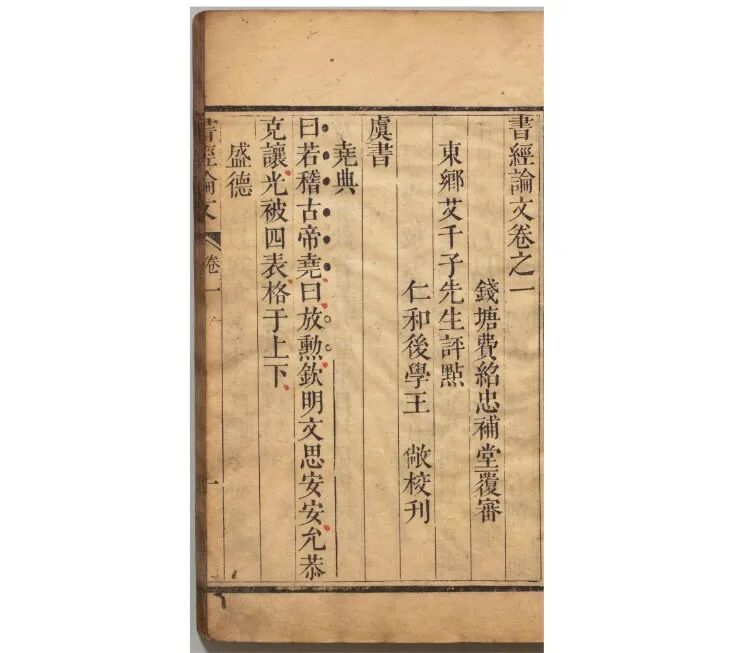 書經論文卷之一
錢塘費紹忠補堂覆審
東鄉艾千子先生評點
仁和後學王　敞校刊
虞書
堯典
曰若稽古帝堯曰放勳欽明文思安安允恭
克讓光被四表格于上下
盛德
書經論文　卷一　一